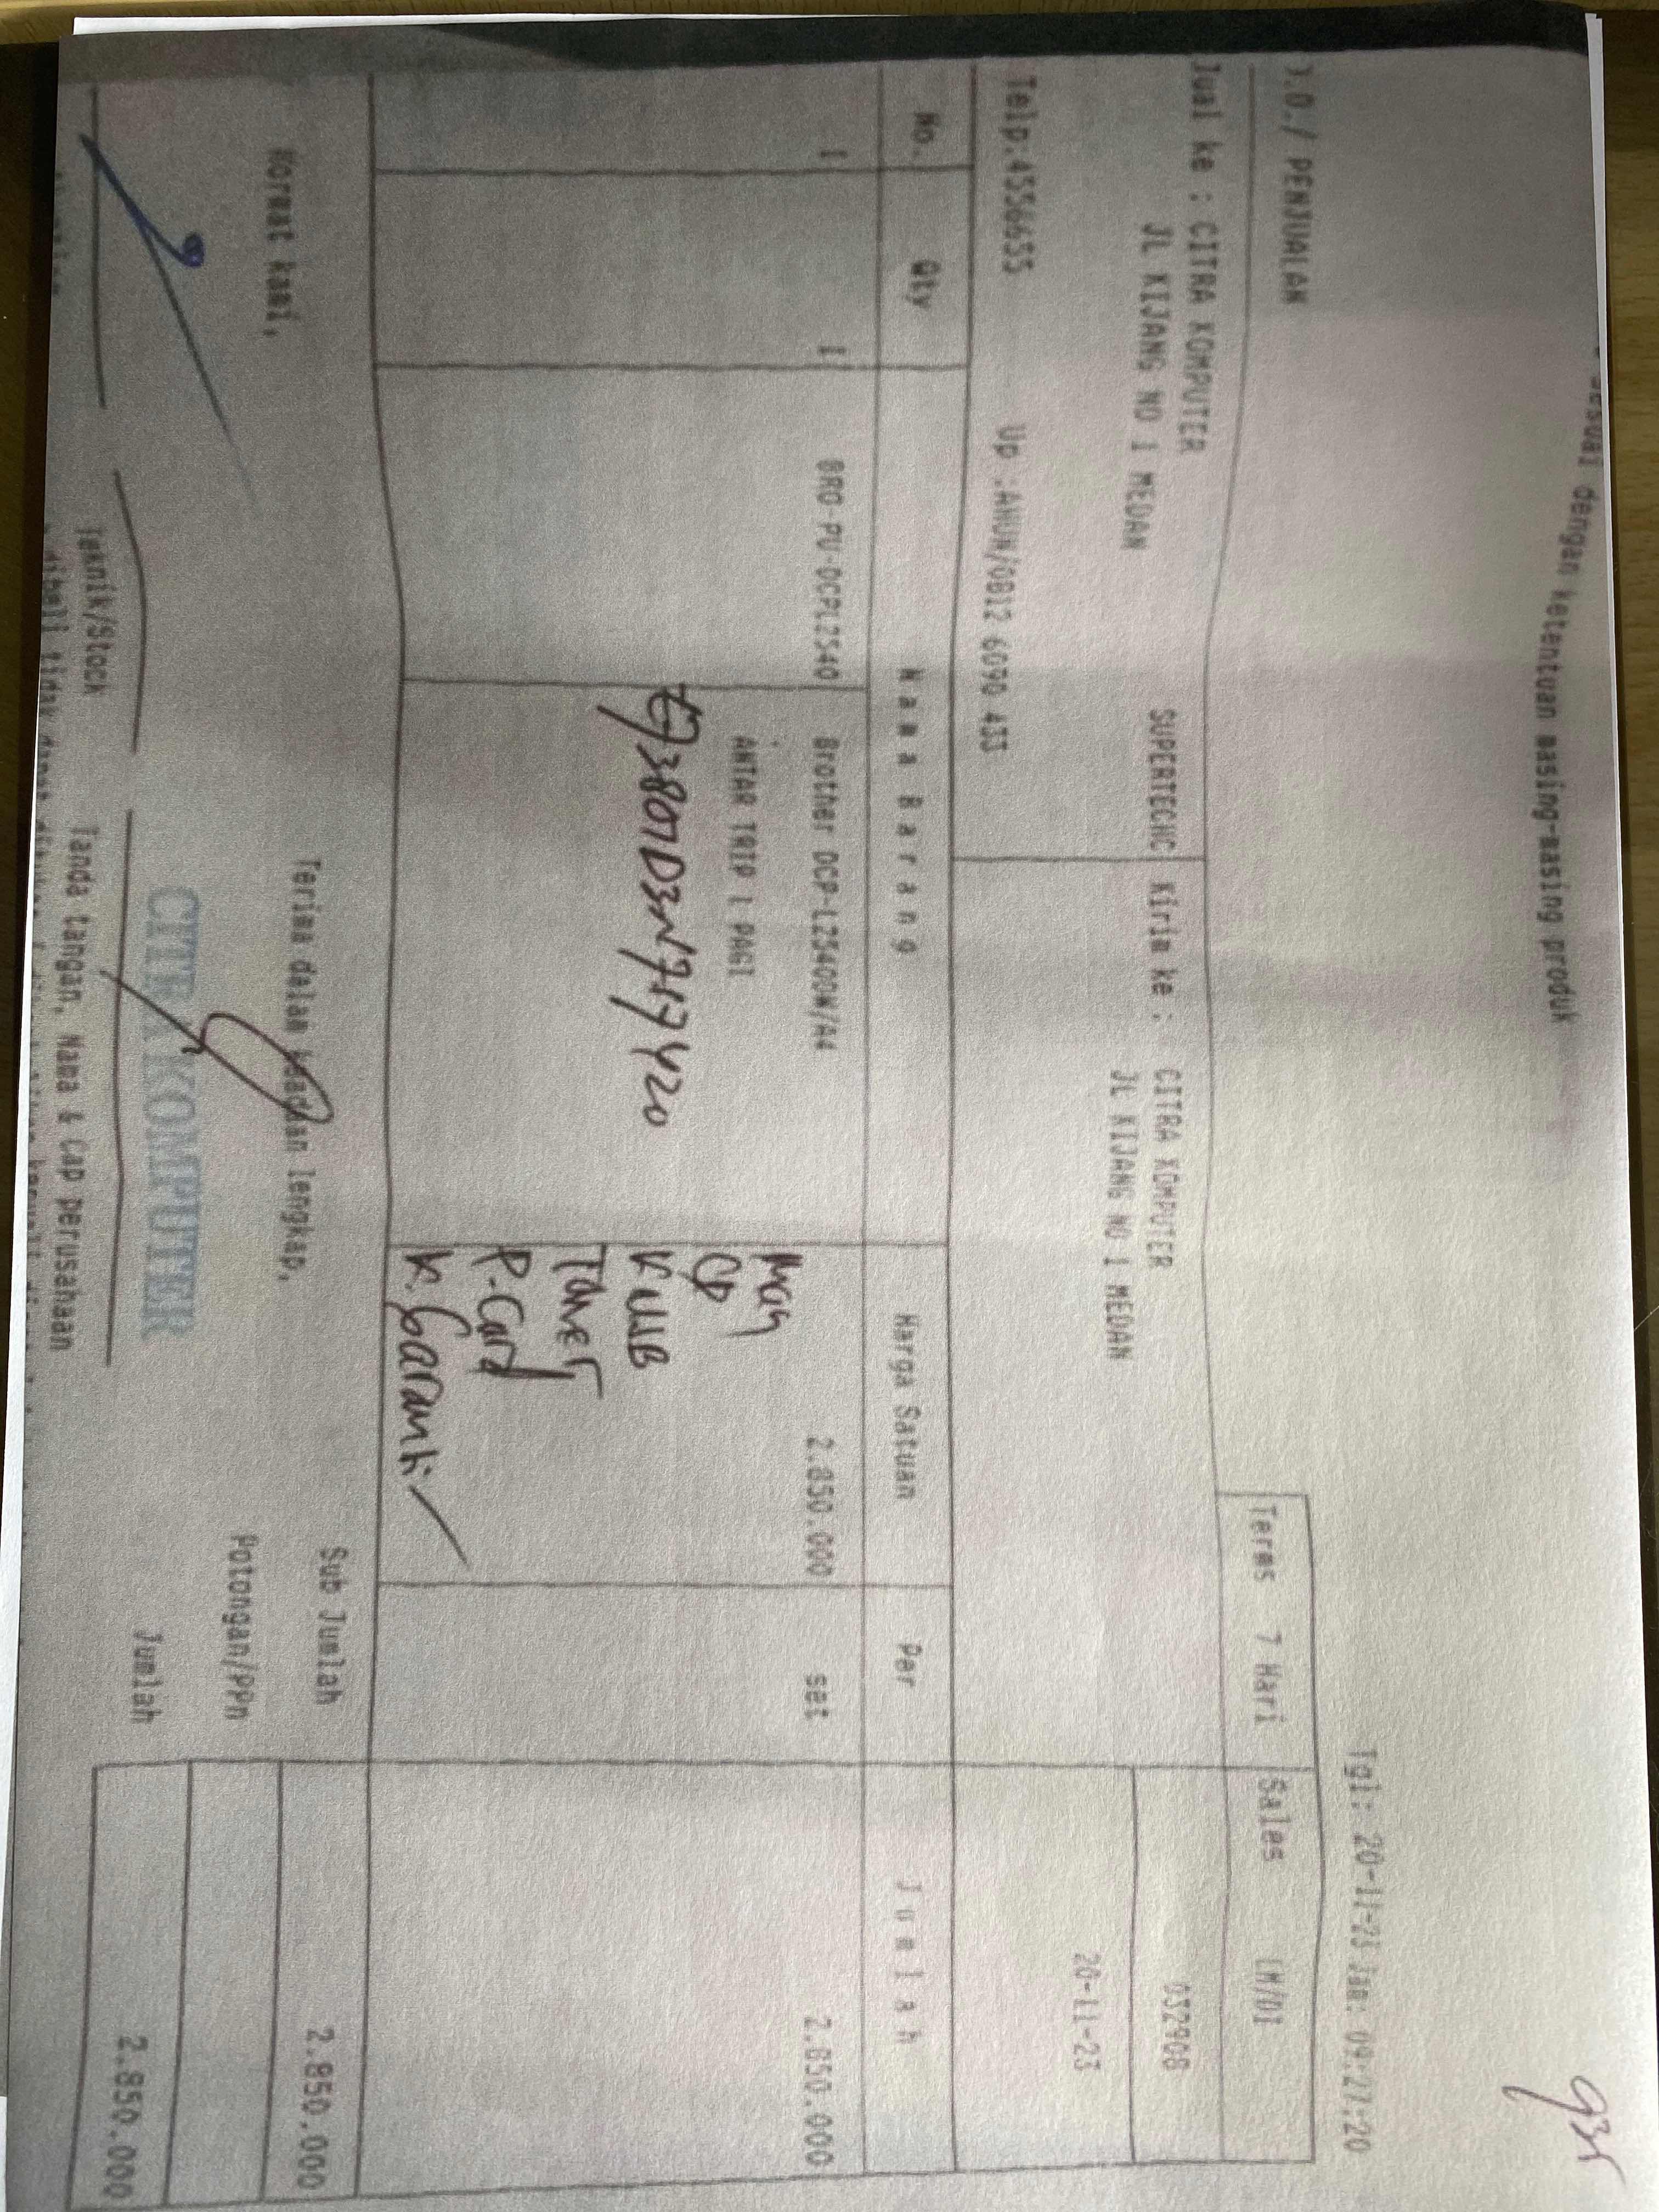 sesuai dengan ketentuan masing-masing produk
935
Tgl: 20-11-23 Jam: 09:27:20
D.O./ PENJUALAN
Terms 7 Hari Sales LM/01
Jual ke : CITRA KOMPUTER SUPERTECHC Kirim ke : CITRA KOMPUTER 032908
JL KIJANG NO 1 MEDAN JL KIJANG NO 1 MEDAN
20-11-23
Telp:4556655 Up :AHUN/0812 6090 433
No. Qty Nama Barang Harga Satuan Per Jumlah
1 1 BRO-PU-DCPL2540 Brother DCP-L2540DW/A4 2.850.000 set 2.850.000
ANTAR TRIP 1 PAGI
CD
K USB
Toner
P-Card
K. Garansi
Sub Jumlah 2.850.000
Hormat kami, Terima dalam keadaan lengkap,
Potongan/PPn
CITRA KOMPUTER
Jumlah 2.850.000
Teknik/Stock Tanda tangan, Nama & Cap perusahaan